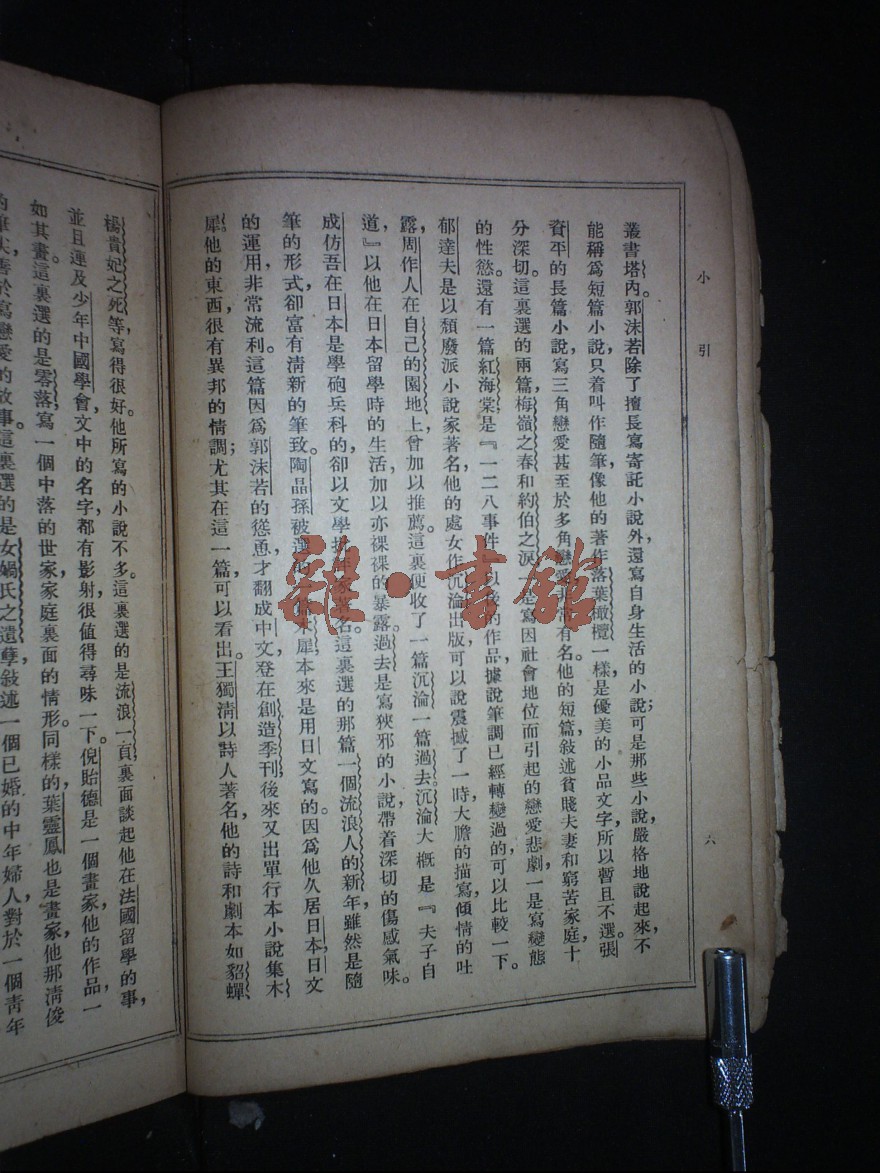 小引
六
叢書塔內。郭沫若除了擅長寫寄託小說外，還寫自身生活的小說；可是那些小說，嚴格地說起來，不
能稱爲短篇小說，只着叫作隨筆，像他的著作落葉橄欖一樣，是優美的小品文字，所以暫且不選。張
資平的長篇小說，寫三角戀愛甚至於多角戀愛，非常有名。他的短篇，敘述貧賤夫妻和窮苦家庭，十
分深切。這裏選的兩篇，梅嶺之春和約伯之淚，一是寫因社會地位而引起的戀愛悲劇，一是寫變態
的性慾。還有一篇紅海棠，是『一二八事件』以後的作品，據說筆調已經轉變過的，可以比較一下。
郁達夫是以頹廢派小說家著名，他的處女作沉淪出版，可以說震撼了一時，大膽的描寫，傾情的吐
露，周作人在自己的園地上，曾加以推薦。這裏便收了一篇沉淪，一篇過去。沉淪大概是『夫子自
道，』以他在日本留學時的生活，加以亦裸裸的暴露。過去是寫狹邪的小說，帶着深切的傷感氣味。
成仿吾在日本是學砲兵科的，卻以文學批評家著名。這裏選的那篇一個流浪人的新年，雖然是隨
筆的形式，卻富有淸新的筆致。陶晶孫被選的一篇木犀，本來是用日文寫的。因爲他久居日本，日文
的運用，非常流利。這篇因爲郭沫若的慫恿，才翻成中文，登在創造季刊，後來又出單行本小說集木
犀。他的東西，很有異邦的情調；尤其在這一篇，可以看出。王獨淸以詩人著名，他的詩和劇本如貂蟬
楊貴妃之死等，寫得很好。他所寫的小說不多。這裏選的是流浪一頁，裏面談起他在法國留學的事，
並且連及少年中國學會，文中的名字，都有影射，很值得尋味一下。倪貽德是一個畫家，他的作品，一
如其畫。這裏選的是零落，寫一個中落的世家家庭裏面的情形。同樣的，葉靈鳳也是畫家，他那淸俊
的筆尖，善於寫戀愛的故事。這裏選的是女媧氏之遺孽，敍述一個已婚的中年婦人，對於一個靑年
雜·書館